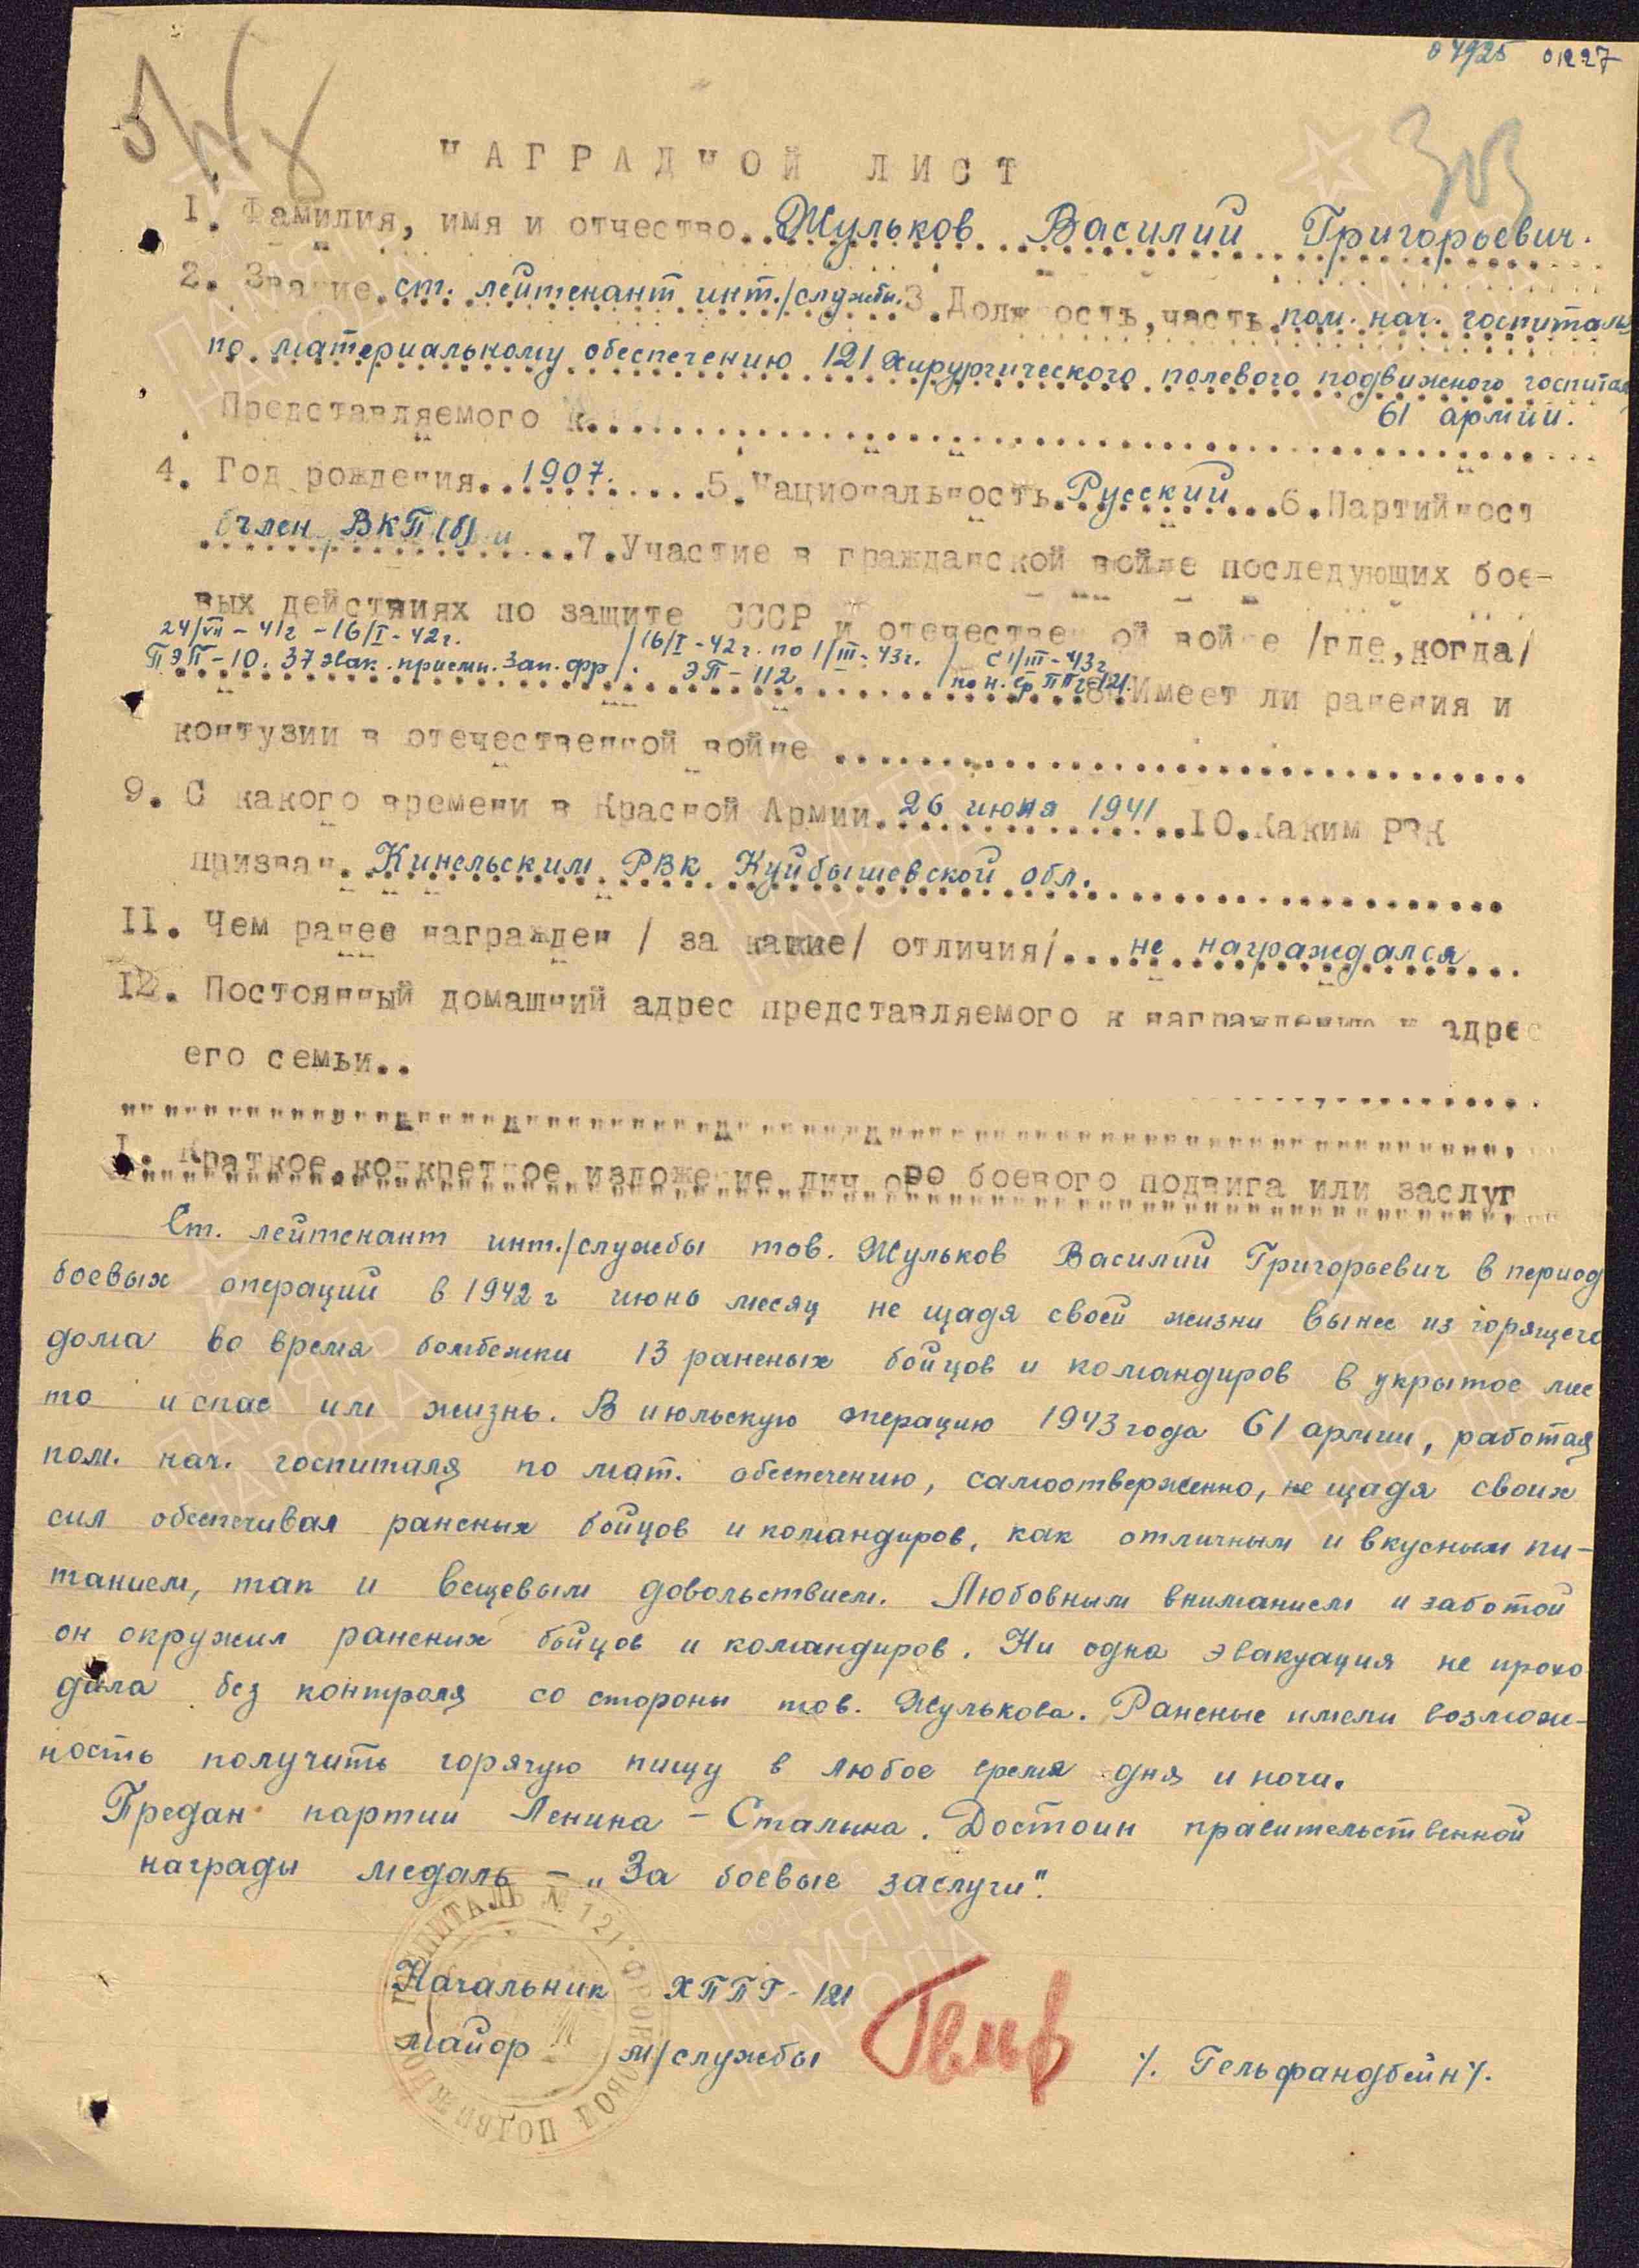 07925 01227
303
НАГРАДНОЙ ЛИСТ
I. Фамилия, имя и отчество. Жульков Василий Григорьевич.
2. Звание ст. лейтенант инт./службы. 3. Должность, часть пом. нач. госпиталя
по материальному обеспечению 121 хирургического полевого подвижного госпиталя
61 армии.
Представляемого к
4. Год рождения. 1907. 5. Национальность. Русский 6. Партийност
член ВКП(б) 7. Участие в гражданской войне последующих бое-
вых действиях по защите СССР и отечественной войне /где, когда/
24/VII-41г-16/I-42г. /16/I-42г. по 1/III-43г. / с 1/III-43г
ПЭП-10. 37 эвак. приемн. Зап. фр/. ЭП-112 / по н. вр ППГ-121. 8. Имеет ли ранения и
контузии в отечественной войне
9. С какого времени в Красной Армии. 26 июня 1941 10. Каким РВК
призван. Кинельским РВК Куйбышевской обл.
II. Чем ранее награжден / за какие/ отличия/... не награждался
12. Постоянный домашний адрес представляемого к награждению и адрес
его семьи..
I. Краткое, конкретное изложение личного боевого подвига или заслуг
Ст. лейтенант инт./службы тов. Жульков Василий Григорьевич в период
боевых операций в 1942 г июнь месяц не щадя своей жизни вынес из горящего
дома во время бомбежки 13 раненых бойцов и командиров в укрытое мес
то и спас им жизнь. В июльскую операцию 1943 года 61 армии, работая
пом. нач. госпиталя по мат. обеспечению, самоотверженно, не щадя своих
сил обеспечивал раненых бойцов и командиров, как отличным и вкусным пи-
танием, так и вещевым довольствием. Любовным вниманием и заботой
он окружил раненых бойцов и командиров. Ни одна эвакуация не прохо
дила без контроля со стороны тов. Жулькова. Раненые имели возмож-
ность получить горячую пищу в любое время дня и ночи.
Предан партии Ленина - Сталина. Достоин правительственной
награды медаль - „За боевые заслуги".
Начальник ХППГ-121
майор м/службы /. Гельфандбейн/.
ГОСПИТАЛЬ № 121
ПАМЯТЬ НАРОДА